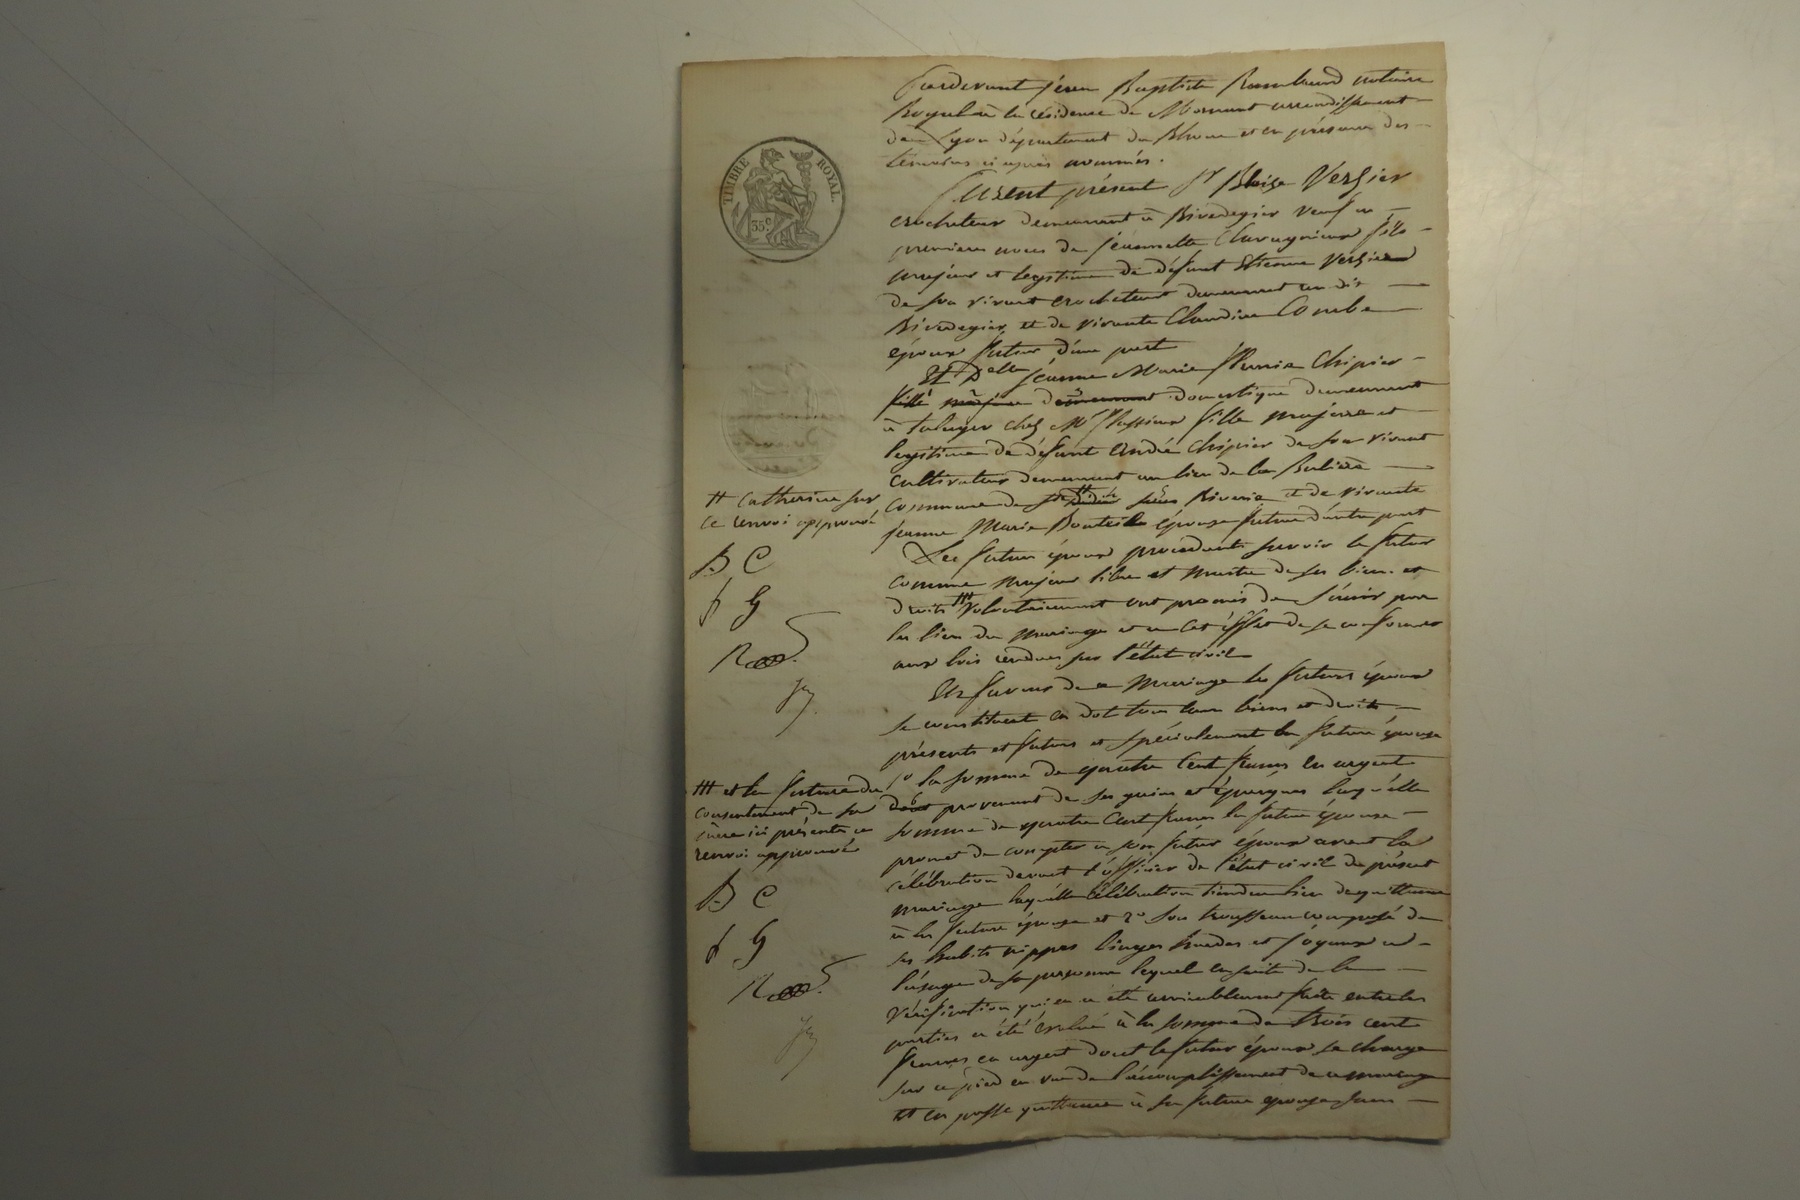 TIMBRE ROYAL.
35 c
Pardevant jean Baptiste Rambaud notaire
Royal à la résidence de Mornant arrondissement
de Lyon département du Rhone et en présence des
témoins ci après nommés.
furent présent Sr Blaise Verzier
crocheteur demeurant à Rivedegier veuf en
premieres noces de jeannette Chavagnieux fils
majeur et legitime de défunt Etienne Verzier
de son vivant crocheteur demeurant au dit
Rivedegier, et de vivante Claudine Combe
époux futur d'une part
Et Delle jeanne Marie Chipier
fille majeure demeurant domestique demeurant
à taluyer chez Mr fille majeure et
legitime de défunt André Chipier de son vivant
cultivateur demeurant au lieu de la
commune de St Didier sous Riverie et de vivante
jeanne Marie Bouteille épouse future d'autre part
Les futurs époux procédants savoir le futur
comme majeur libre et maitre de ses biens et
droits ttt volontairement ont promis de s'unir par
les liens du mariage et à cet éffet de se conformer
aux lois rendues sur l'état civil
En faveur de ce mariage les futurs époux
se constituent en dot tous leurs biens et droits
présents et futurs et spécialement la future épouse
1° la somme de quatre Cent francs en argent
provenant de ses gains et épargnes laquelle
somme de quatre Cent francs la future épouse
promet de compter à son futur époux avant la
célébration devant l'officier de l'état civil du présent
mariage laquelle célébration tiendra lieu de quittance
à la future épouse et 2° son trousseau composé de
ses habits nippes linges hardes et joyaux à
l'usage de sa personne lequel ensuite de la
vérification qui en a été amiablement faite entre les
parties a été évalué à la somme de trois cent
francs en argent dont le futur époux se charge
sur ce pied en vue de l'accomplissement de ce mariage
Et en passe quittance à sa future épouse sans
tt Catherine sur
ce renvoi approuvé
B C
f G
R
ttt et la future du
consentement de sa
mère ici présente ce
renvoi approuvé
B C
f G
R